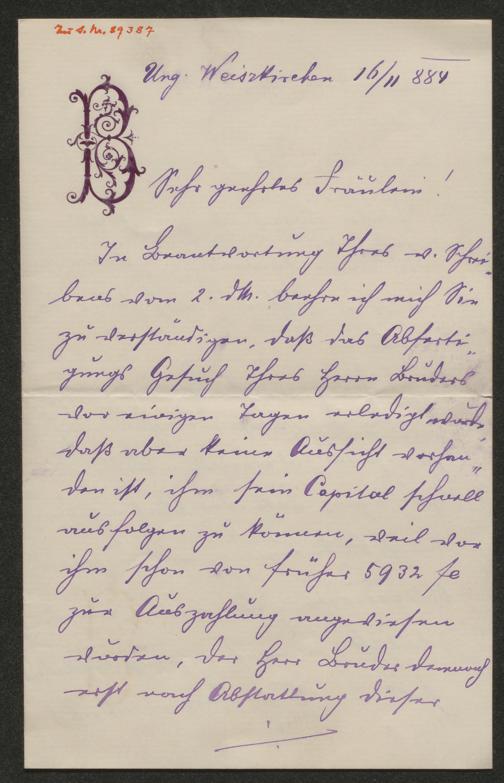 Zu S. Nr. 89387
B
Ung. Weiszkirchen 16/11 884
Sehr geehrtes Fräulein!
In Beantwortung Ihres w. Schrei-
bens vom 2. dM. beehre ich mich Sie
zu verständigen, daß das Abferti-
gungs Gesuch Ihres Herrn Bruders
vor einigen Tagen erledigt wurde,
daß aber keine Aussicht vorhan-
den ist, ihm sein Capital schnell
ausfolgen zu können, weil vor
ihm schon von früher 5932 f
zur Auszahlung angewiesen
wurden, der Herr Bruder demnach
erst nach Abstattung dieser
./.